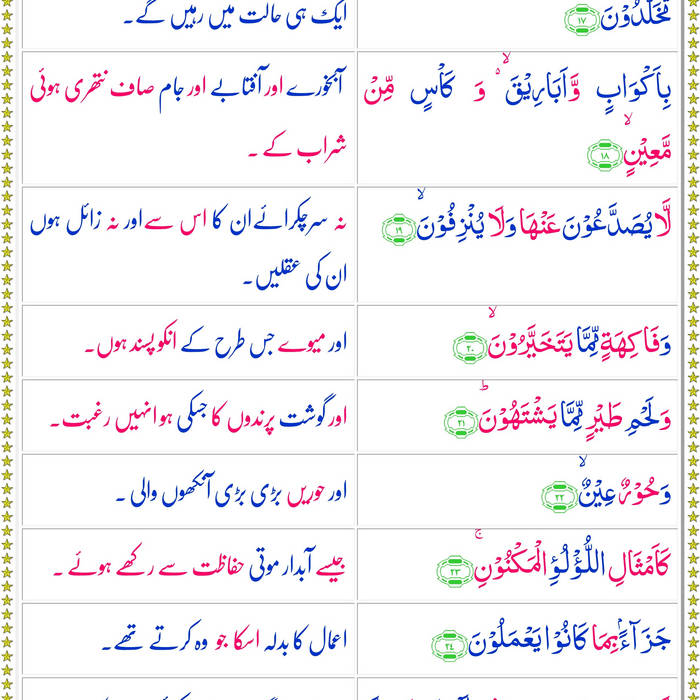 تُخَلَّدُوۡنَ ﴿۱۷﴾
ایک ہی حالت میں رہیں گے۔
بِاَكۡوَابٍ وَّاَبَارِيۡقَ ۙ وَ كَاۡسٍ مِّنۡ
مَّعِيۡنٍ ۙ ﴿۱۸﴾
آبخورے اور آفتابے اور جام صاف نتھری ہوئی
شراب کے ۔
لَّا يُصَدَّعُوۡنَ عَنۡهَا وَلَا يُنۡزِفُوۡنَ ۙ ﴿۱۹﴾
نہ سر چکرائے ان کا اس سے اور نہ زائل ہوں
ان کی عقلیں۔
وَفَاكِهَةٍ مِّمَّا يَتَخَيَّرُوۡنَ ۙ ﴿۲۰﴾
اور میوے جس طرح کے انکو پسند ہوں۔
وَلَحۡمِ طَيۡرٍ مِّمَّا يَشۡتَهُوۡنَ ؕ ﴿۲۱﴾
اور گوشت پرندوں کا جسکی ہو انہیں رغبت۔
وَحُوۡرٌ عِيۡنٌ ۙ ﴿۲۲﴾
اور حوریں بڑی بڑی آنکھوں والی ۔
كَاَمۡثَالِ اللُّؤۡلُـؤِ الۡمَكۡنُوۡنِ ۚ ﴿۲۳﴾
جیسے آبدار موتی حفاظت سے رکھے ہوئے ۔
جَزَآءًۢ بِمَا كَانُوۡا يَعۡمَلُوۡنَ ﴿۲۴﴾
اعمال کا بدلہ اسکا جو وہ کرتے تھے۔